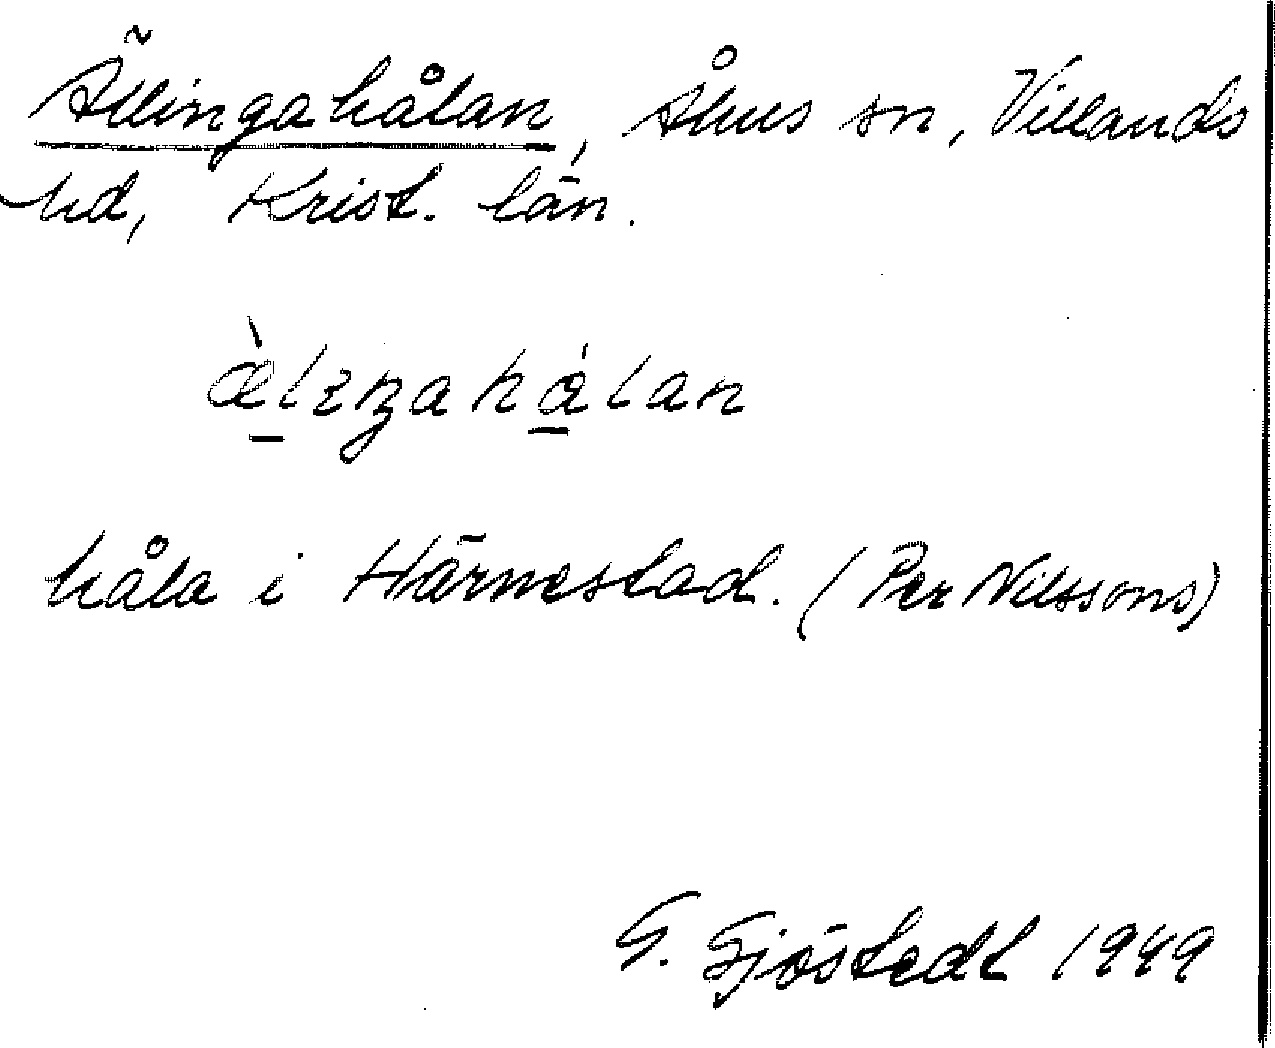 Ällingahålan, Åhus sn, Villands
hd, Krist. län.
æ̀lɪŋahålan
håla i Härnestad. (Per Nilssons)
G. Sjöstedt 1949